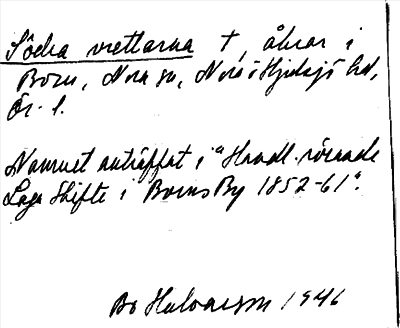 Södra vretarna †, åkrar i
Born, Nora sn, Nora o Hjulsjö hd,
Ör. l.
Namnet anträffat i "Handl. rörande
Laga Skifte i Borns By 1852-61".
Bo Halvarsson 1946